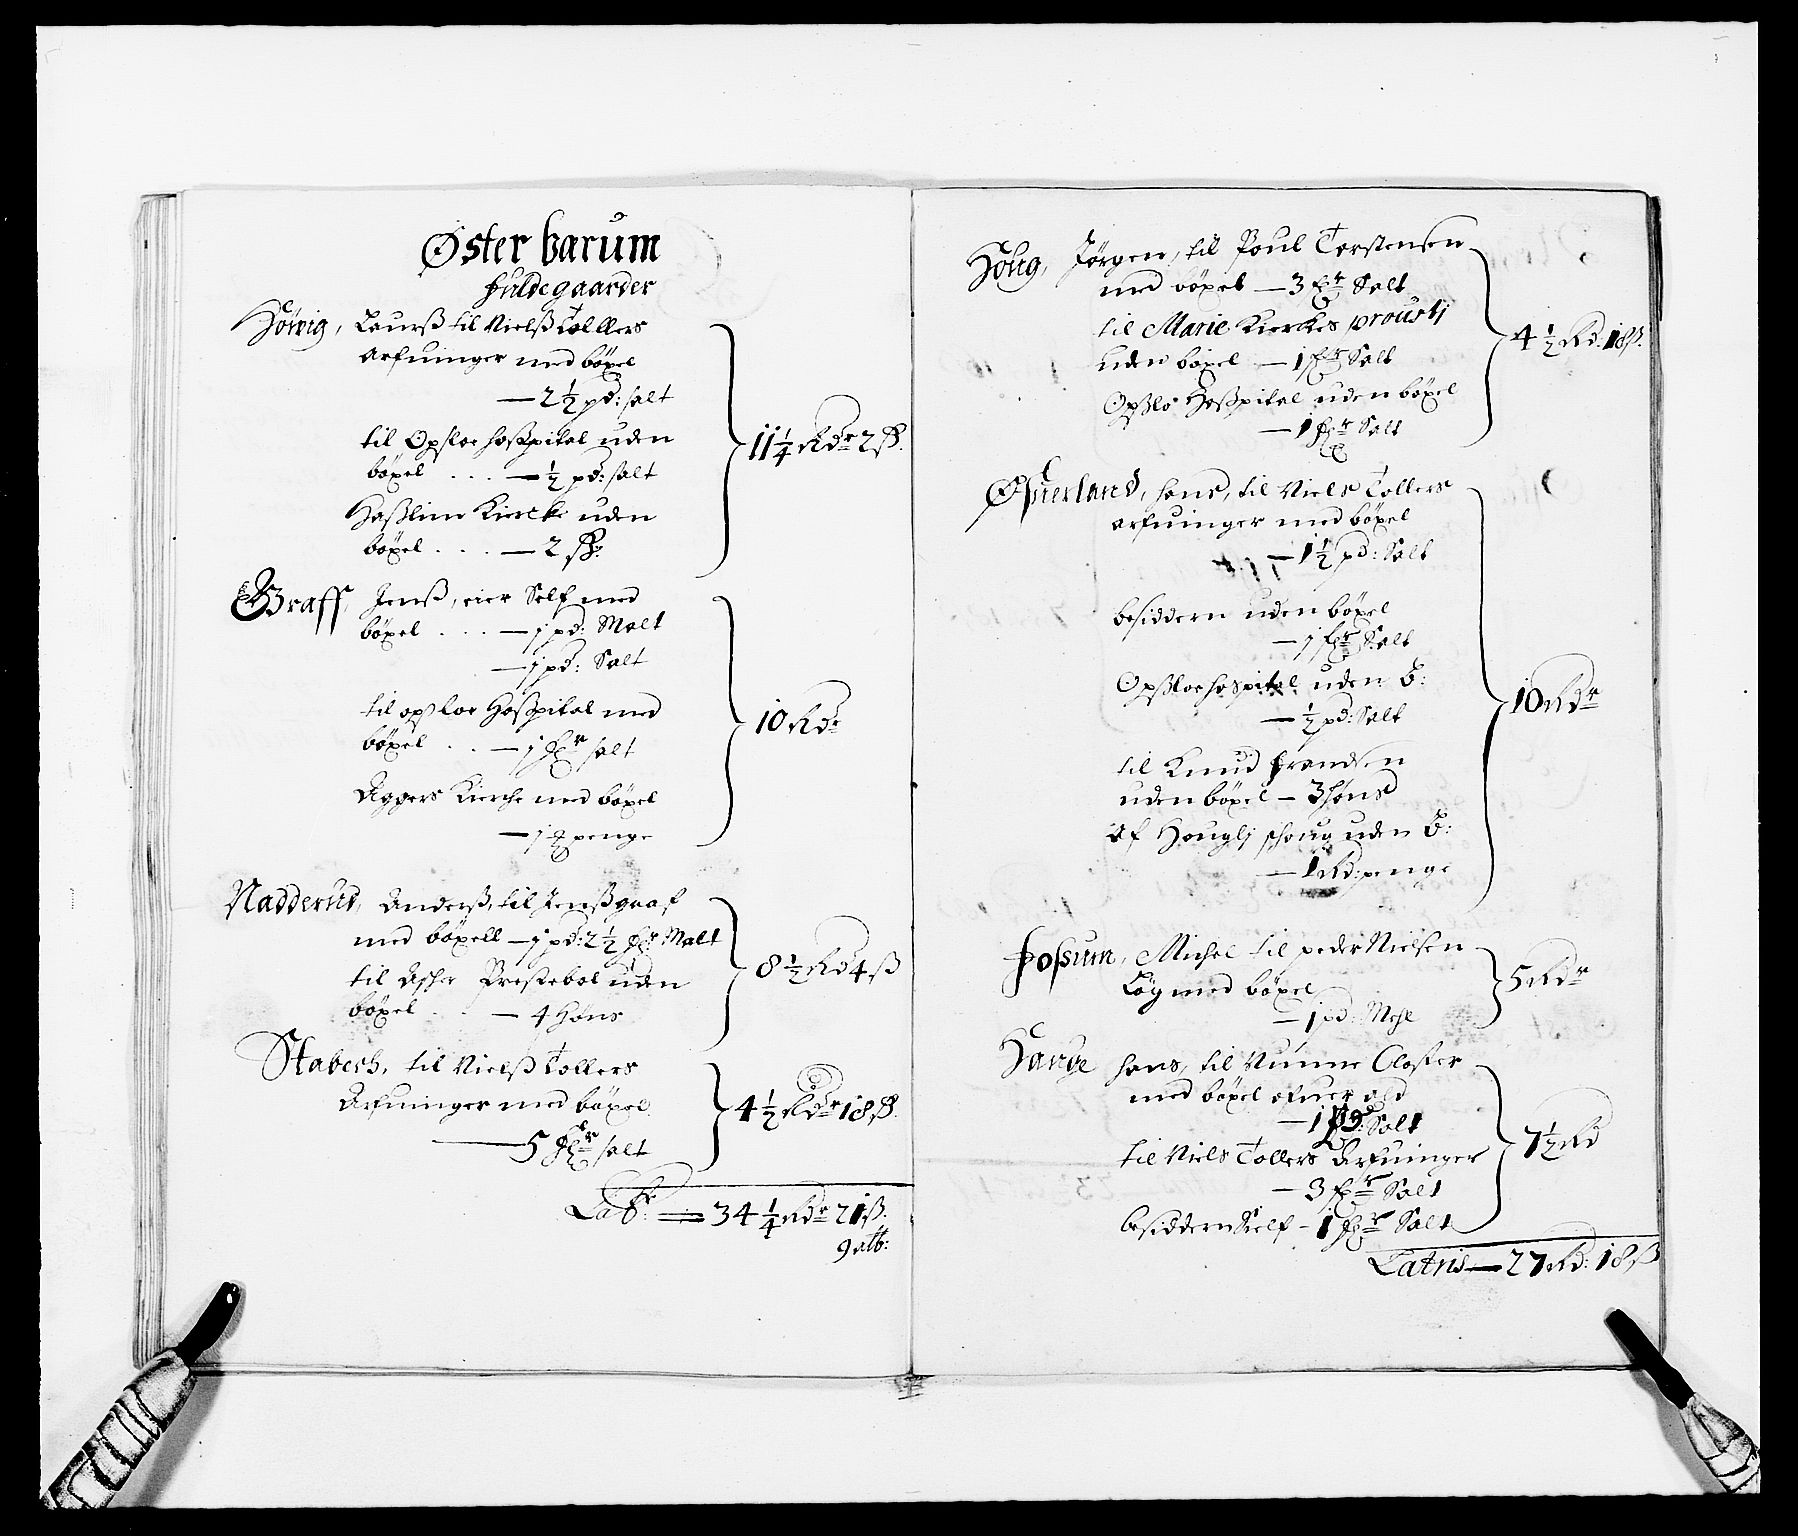 Øster barum
fuldegaarder
Höwig, Laurß til Nielß Tolllers
arfuinger med böxel
— 2 1/2 pd: salt
til Opsloe hoßpital uden
böxel . . . — 1/2 pd: salt
Haßlum Kircke uden
böxel . . . — 2 ß:
11 1/4 Rdr 2 ß.
Graff, Jenß, eier Self med
böxel . . . — 1 pd: Malt
— 1 pd: Salt
til opsloe Hoßpital med
böxel . . — 1 fr salt
Aggers Kirche med böxel
— 1 penge
10 Rdr
Nadderud, Anderß, til Jenß graf
med böxell — 1 pd: 2 1/2 fr Malt
til Asker Prestebol uden
böxel . . — 4 Höns
8 1/2 Rd 4 ß
Stabech, til Nielß Tollers
Arfuinger med böxel
— 5 fr salt
4 1/2 Rdr 18 ß.
Latr: — 34 1/4 Rdr 21 ß.
9 alb:
Houg, Jörgen, til Poul Torstensen
med böxel — 3 fr Salt
til Marie Kierkes prousti
uden böxel — 1 fr Salt
Opßlo Hoßpital uden böxel
— 1 fr Salt
4 1/2 Rd. 18 ß.
Øfuerland, hans, til Niels Tollers
arfuinger med böxel
— 1 1/2 pd: Salt
besiddern uden böxel
— 1 fr Salt
Opßloe hospital uden b:
— 1/2 pd: Salt
til Knud frandsen
uden böxel — 3 höns
af Hougli schoug uden b:
— 1 Rd: penge
10 Rdr
Fossum, Michel til peder Nielsen
Löy med böxel
— 1 pd: Mehl
5 Rdr
Hauge hans, til Nunne Closter
med böxel ofuer ald
— 1 pd: Salt
til Niels Tollers Arfuinger
— 3 fr Salt
besiddern Sielf — 1 fr Salt
7 1/2 Rd
Latris — 27 Rd: 18 ß